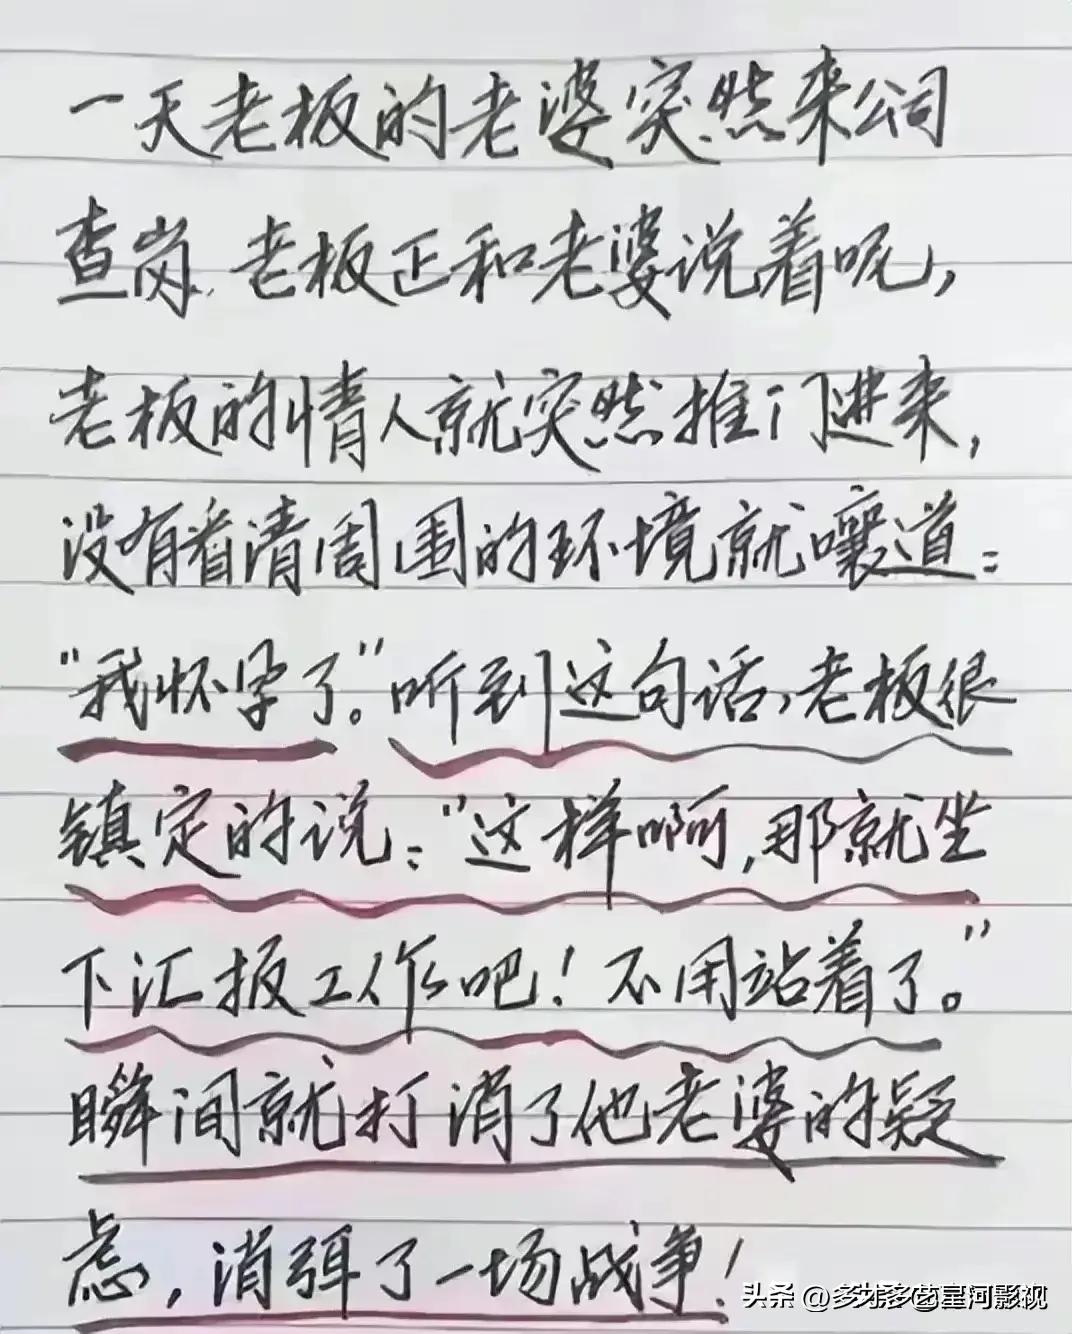 一天老板的老婆突然来公司
查岗,老板正和老婆说着呢,
老板的情人就突然推门进来,
没有看清周围的环境就嚷道:
“我怀孕了。”听到这句话,老板很
镇定的说:“这样啊,那就坐
下汇报工作吧!不用站着了。”
瞬间就打消了他老婆的疑
虑,消弭了一场战争!
头条 @多才多艺星河影视